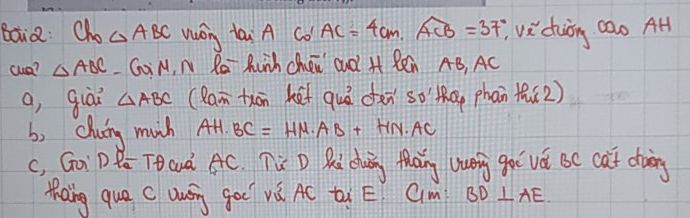 Bài 2: Cho △ ABC vuông tại A có AC = 4cm. ACB = 37°, vẽ đường cao AH
của △ ABC. Gọi M, N là hình chiếu của H lên AB, AC
a, giải △ABC (làm tròn kết quả đến số thập phân thứ 2)
b, chứng minh AH.BC = HM.AB + HN.AC
c, Gọi D là TĐ của AC. Từ D kẻ đường thẳng vuông góc với BC cắt đường
thẳng qua C vuông góc với AC tại E. C/m: BD ⊥ AE.